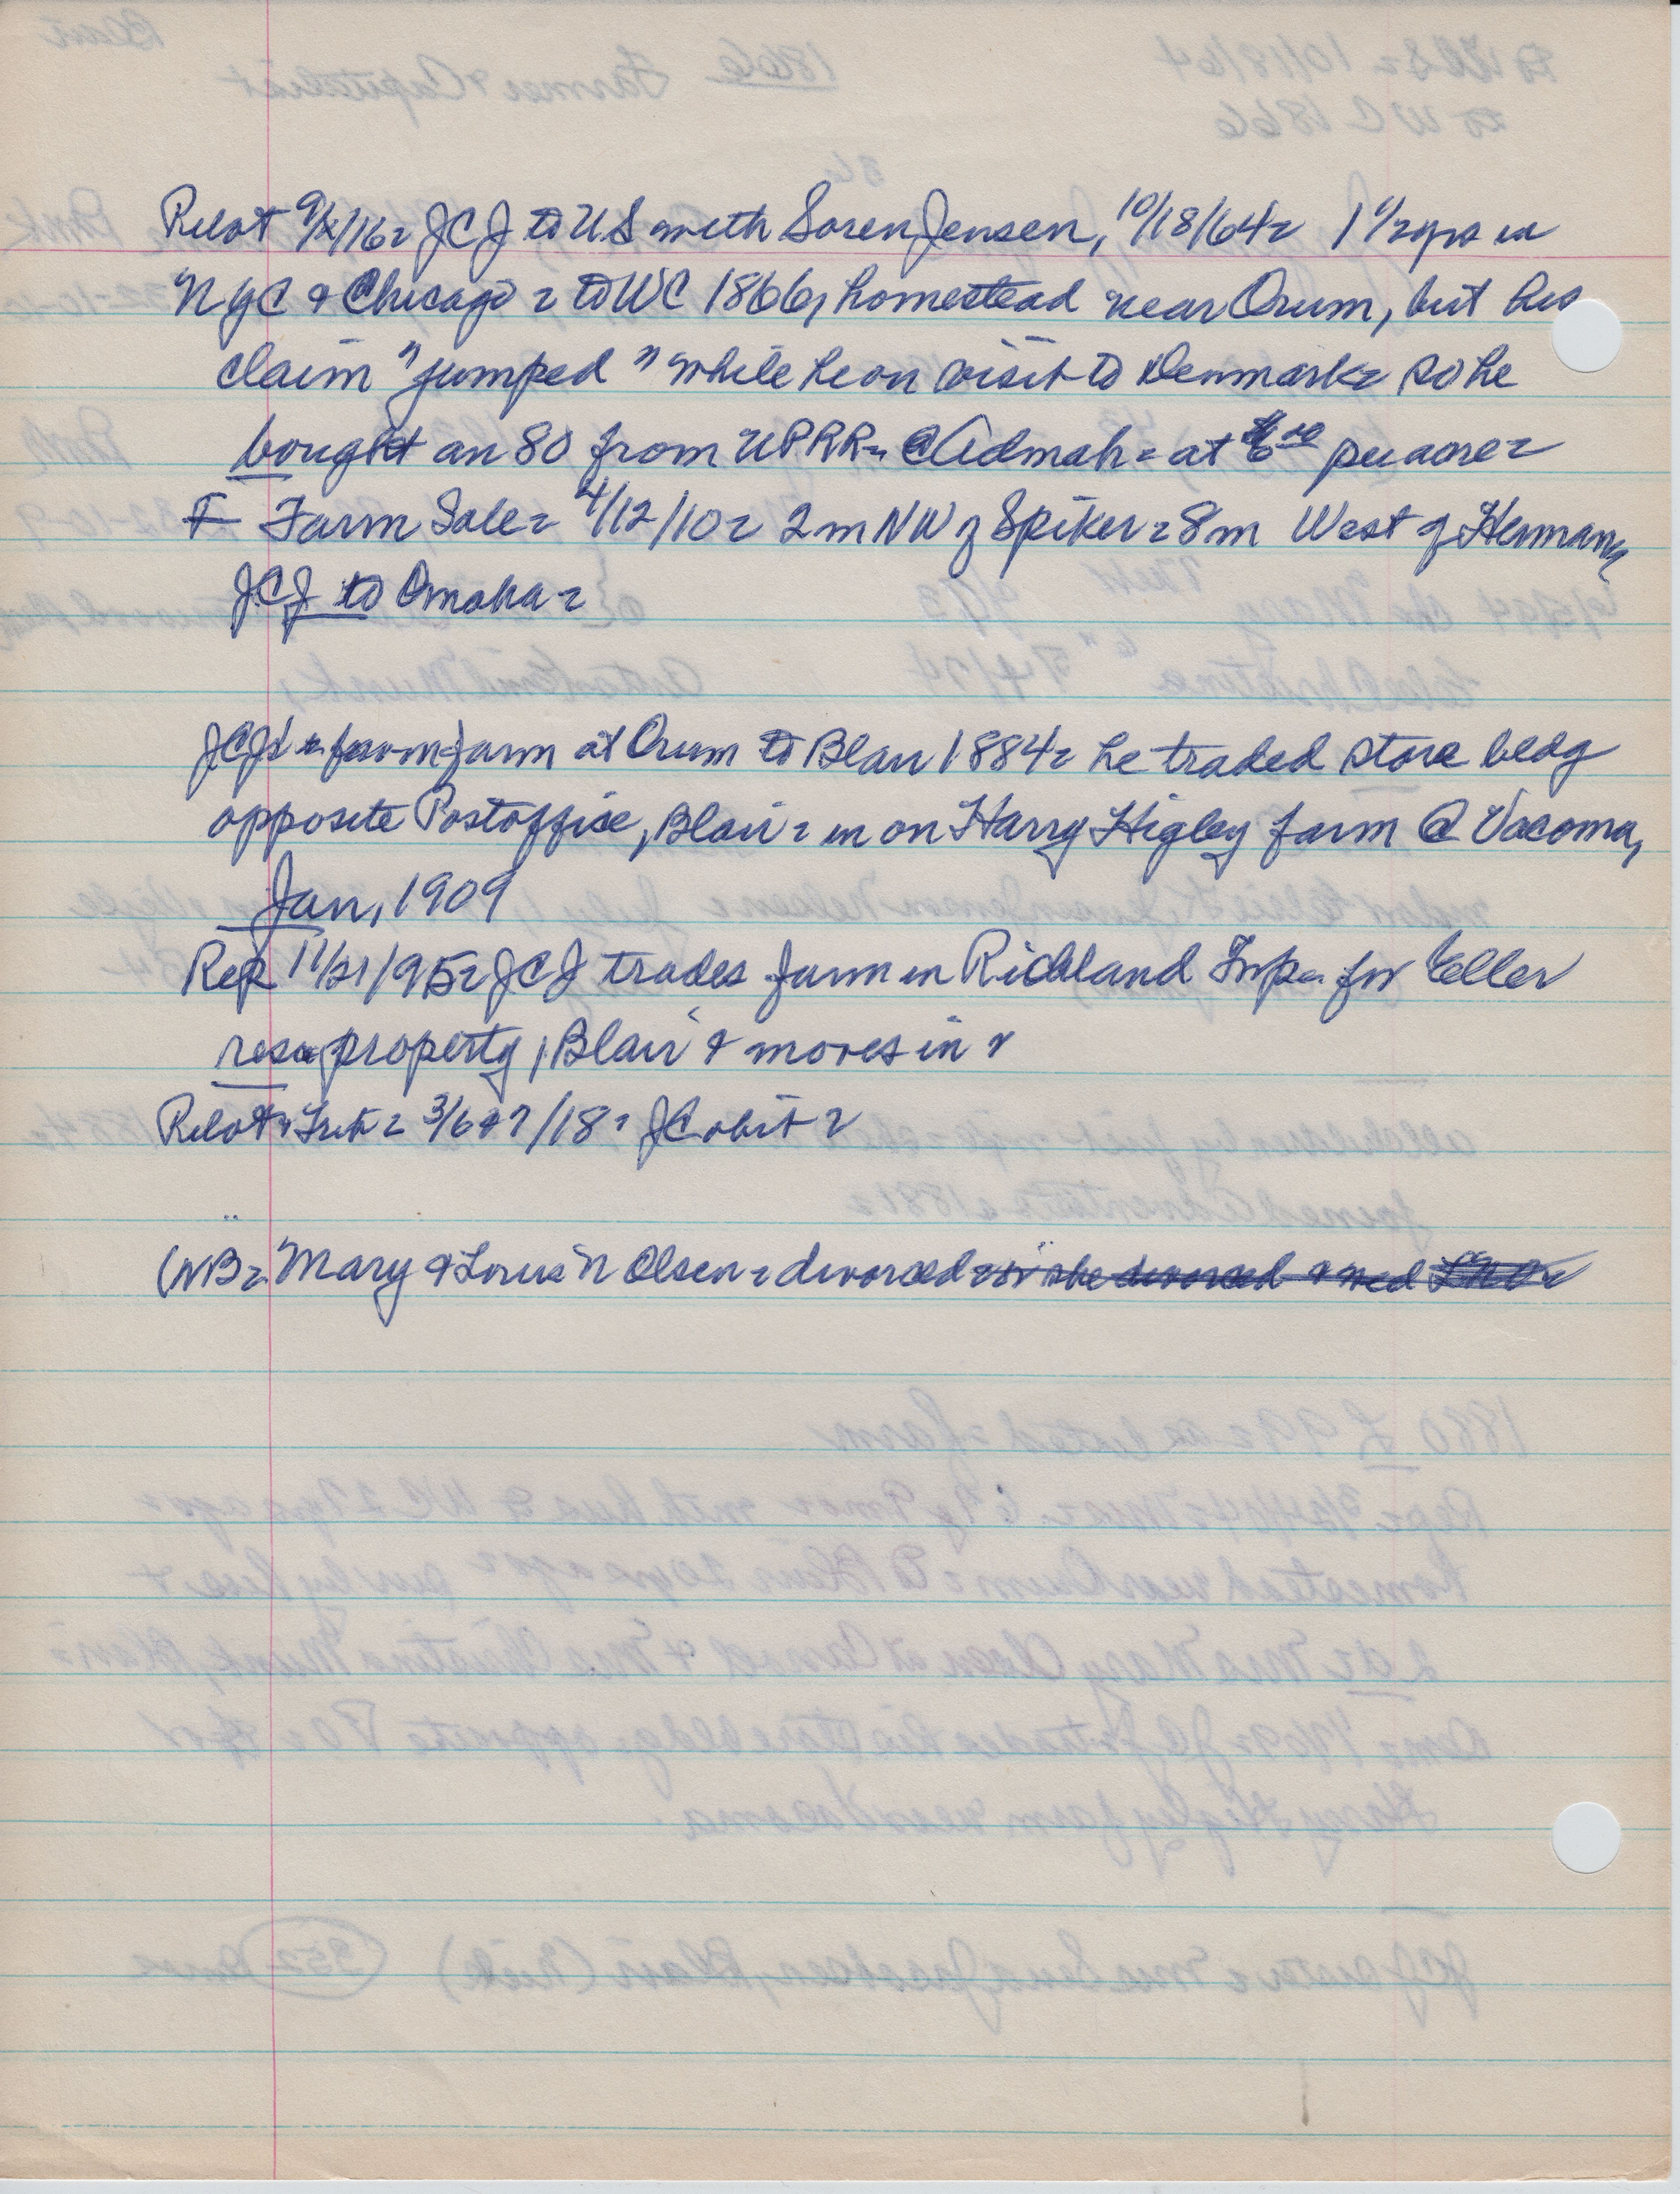 Pilot 9/ /16= JCJ to US with Soren Jensen, 10/18/64= 1 1/2 yrs in
NYC & Chicago = to WC 1866, homestead near Orum, but his
claim "jumped" while he on visit to Denmark= so he
bought an 80 from UPRR= @ Admah= at $6.00 per acre=
Farm Sale= 4/12/10= 2m NW of Spiker= 8m West of Herman,
JCJ to Omaha=
JCJ from farm at Orum to Blair 1884= he traded store bldg
opposite Postoffice, Blair= in on Harry Higley farm @ Vacoma,
Jan, 1909
Rep 11/21/95= JCJ trades farm in Richland Twp. for Eller
res. property, Blair & moves in
Pilot & Trib= 3/6 & 7/18= JC obit=
(NB= Mary & Louis N Olsen= divorced= or she divorced & med LNO=